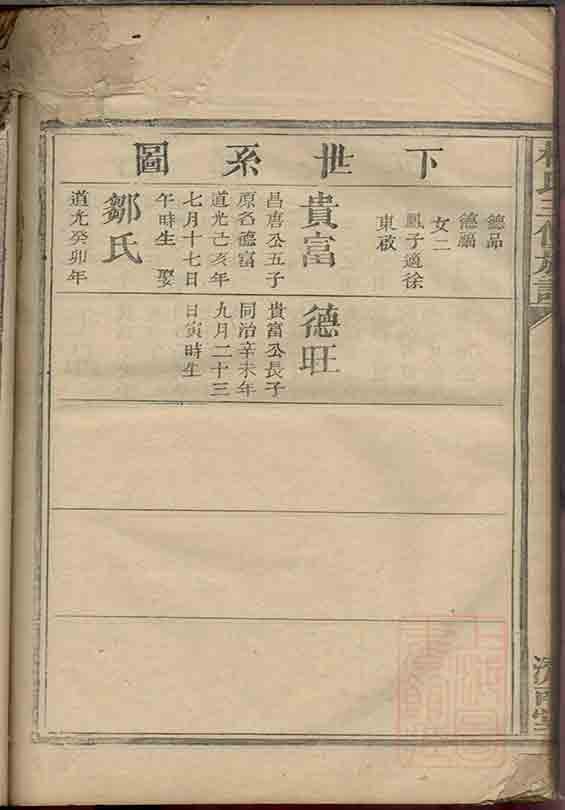 下世系圖
德品
德福
女二
鳳子適徐
東啟
貴富
昌唐公五子
原名德富
道光己亥年
七月十七日
午時生 娶
鄒氏
道光癸卯年
德旺
貴富公長子
同治辛未年
九月二十三
日寅時生